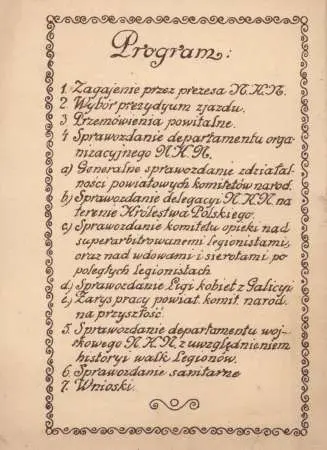 Program:
1. Zagajenie przez prezesa N.K.N.
2. Wybór prezydyum zjazdu.
3 Przemówienia powitalne.
4 Sprawozdanie departamentu orga-
nizacyjnego N.K.N.
a) Generalne sprawozdanie zdziałal-
ności powiatowych komitetów narod.
b) Sprawozdanie delegacyi N.K.N. na
terenie Królestwa Polskiego.
c) Sprawozdanie komitetu opieki nad
superarbitrowanemi legionistami,
oraz nad wdowami i sierotami po
poległych legionistach
d) Sprawozdanie Ligi kobiet z Galicyi
e) Zarys pracy powiat. komit. narod.
na przyszłość.
5. Sprawozdanie departamentu woj-
skowego N.K.N. z uwzględnieniem
historyi walk Legionów.
6. Sprawozdanie sanitarne
7. Wnioski.